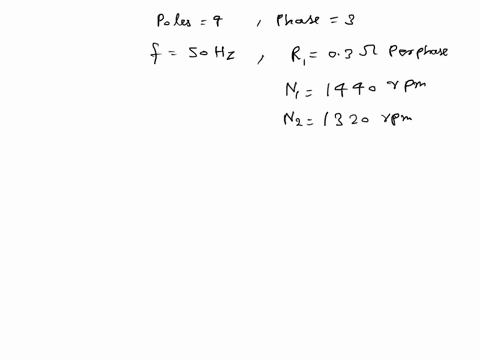 Poles = 4 , Phase = 3
f = 50 Hz , R₁ = 0.3 Ω Per phase
N₁ = 1440 rpm
N₂ = 1320 rpm